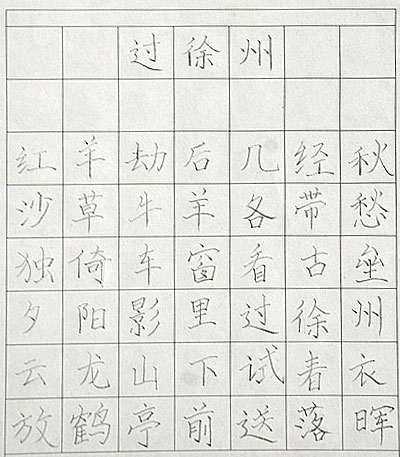 过徐州
红羊劫后几经秋
沙草牛羊各带愁
独倚车窗看古垒
夕阳影里过徐州
云龙山下试春衣
放鹤亭前送落晖